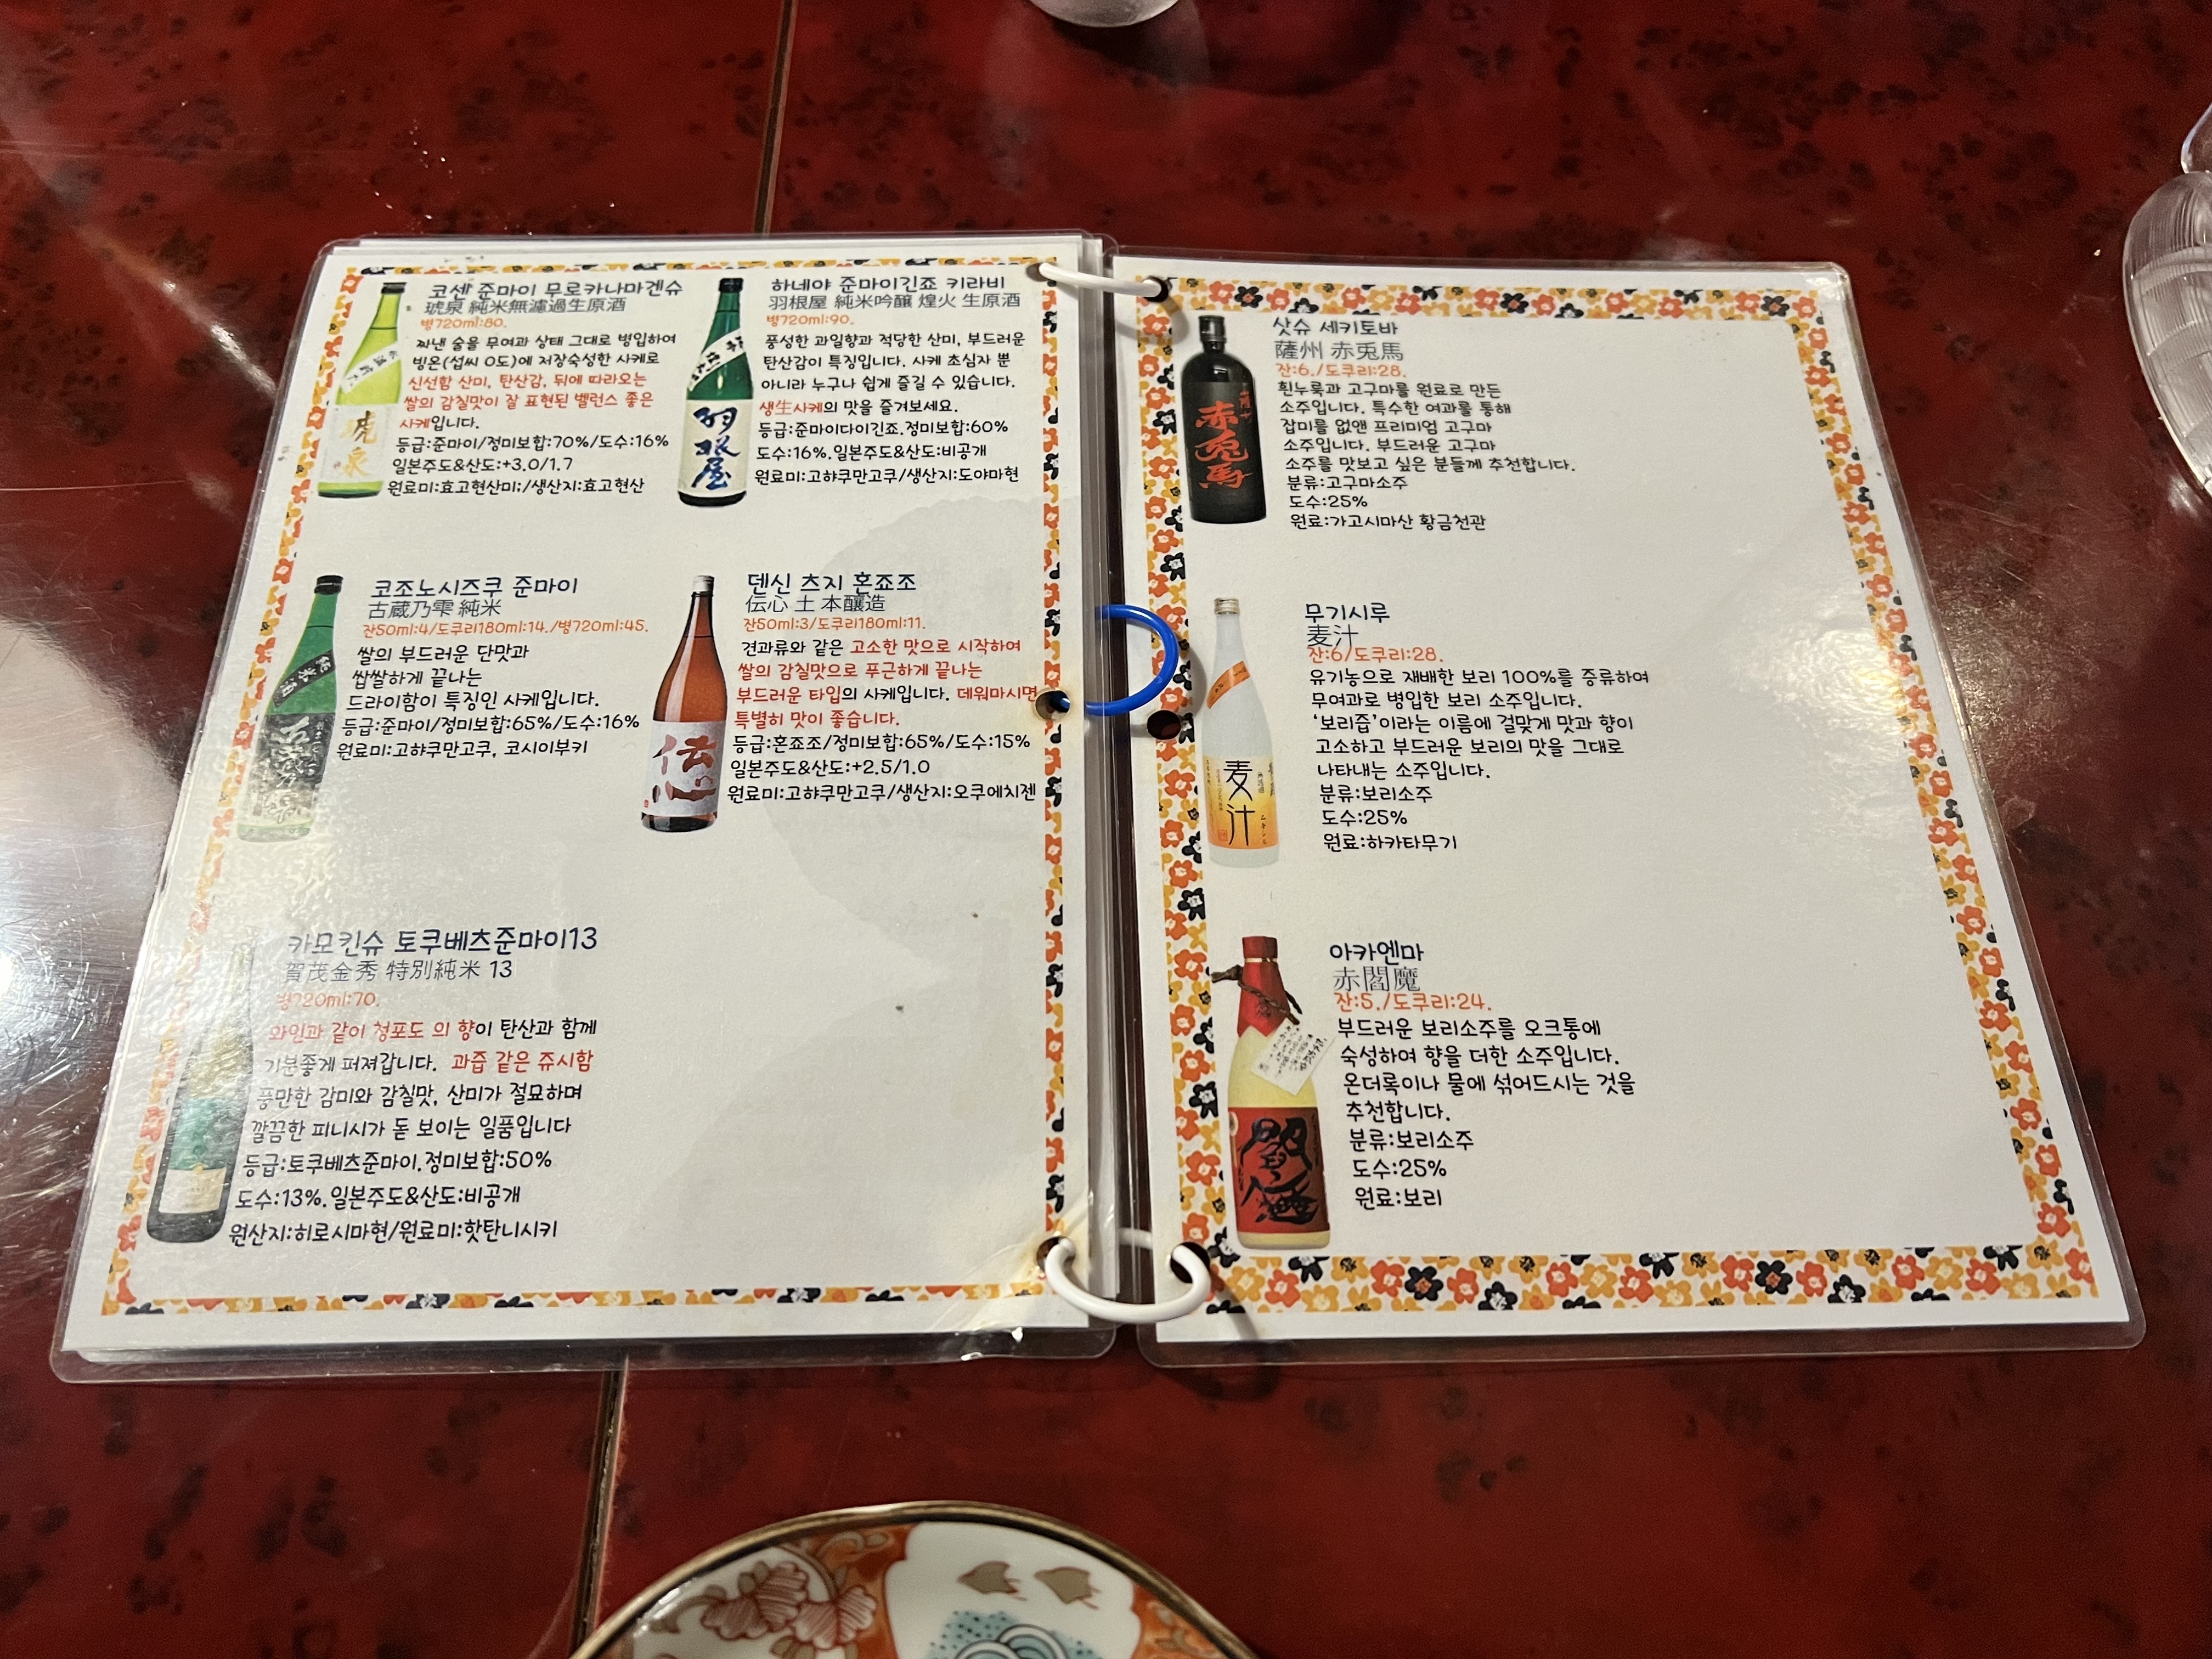 코센 준마이 무로카나마겐슈
琥泉 純米無濾過生原酒
병720ml:80.
짜낸 술을 무여과 상태 그대로 병입하여
빙온(섭씨 0도)에 저장숙성한 사케로
신선함 산미, 탄산감, 뒤에 따라오는
쌀의 감칠맛이 잘 표현된 밸런스 좋은
사케입니다.
등급:준마이/정미보합:70%/도수:16%
일본주도&산도:+3.0/1.7
원료미:효고현산미;/생산지:효고현산
琥泉
하네야 준마이긴죠 키라비
羽根屋 純米吟醸 煌火 生原酒
병720ml:90.
풍성한 과일향과 적당한 산미, 부드러운
탄산감이 특징입니다. 사케 초심자 뿐
아니라 누구나 쉽게 즐길 수 있습니다.
생生사케의 맛을 즐겨보세요.
등급:준마이다이긴죠.정미보합:60%
도수:16%.일본주도&산도:비공개
원료미:고햐쿠만고쿠/생산지:도야마현
羽根屋
코조노시즈쿠 준마이
古蔵乃雫 純米
잔50ml:4/도쿠리180ml:14./병720ml:45.
쌀의 부드러운 단맛과
쌉쌀하게 끝나는
드라이함이 특징인 사케입니다.
등급:준마이/정미보합:65%/도수:16%
원료미:고햐쿠만고쿠, 코시이부키
純米酒
덴신 츠지 혼죠조
伝心 土 本醸造
잔50ml:3/도쿠리180ml:11.
견과류와 같은 고소한 맛으로 시작하여
쌀의 감칠맛으로 푸근하게 끝나는
부드러운 타입의 사케입니다. 데워마시면
특별히 맛이 좋습니다.
등급:혼죠조/정미보합:65%/도수:15%
일본주도&산도:+2.5/1.0
원료미:고햐쿠만고쿠/생산지:오쿠에치젠
伝心
카모킨슈 토쿠베츠준마이13
賀茂金秀 特別純米 13
병720ml:70.
와인과 같이 청포도 의 향이 탄산과 함께
기분좋게 퍼져갑니다. 과즙 같은 쥬시함
풍만한 감미와 감칠맛, 산미가 절묘하며
깔끔한 피니시가 돋 보이는 일품입니다
등급:토쿠베츠준마이.정미보합:50%
도수:13%.일본주도&산도:비공개
원산지:히로시마현/원료미:핫탄니시키
삿슈 세키토바
薩州 赤兎馬
잔:6./도쿠리:28.
흰누룩과 고구마를 원료로 만든
소주입니다. 특수한 여과를 통해
잡미를 없앤 프리미엄 고구마
소주입니다. 부드러운 고구마
소주를 맛보고 싶은 분들께 추천합니다.
분류:고구마소주
도수:25%
원료:가고시마산 황금천관
赤兎馬
무기시루
麦汁
잔:6/도쿠리:28.
유기농으로 재배한 보리 100%를 증류하여
무여과로 병입한 보리 소주입니다.
'보리즙'이라는 이름에 걸맞게 맛과 향이
고소하고 부드러운 보리의 맛을 그대로
나타내는 소주입니다.
분류:보리소주
도수:25%
원료:하카타무기
麦汁
아카엔마
赤閻魔
잔:5./도쿠리:24.
부드러운 보리소주를 오크통에
숙성하여 향을 더한 소주입니다.
온더록이나 물에 섞어드시는 것을
추천합니다.
분류:보리소주
도수:25%
원료:보리
閻魔